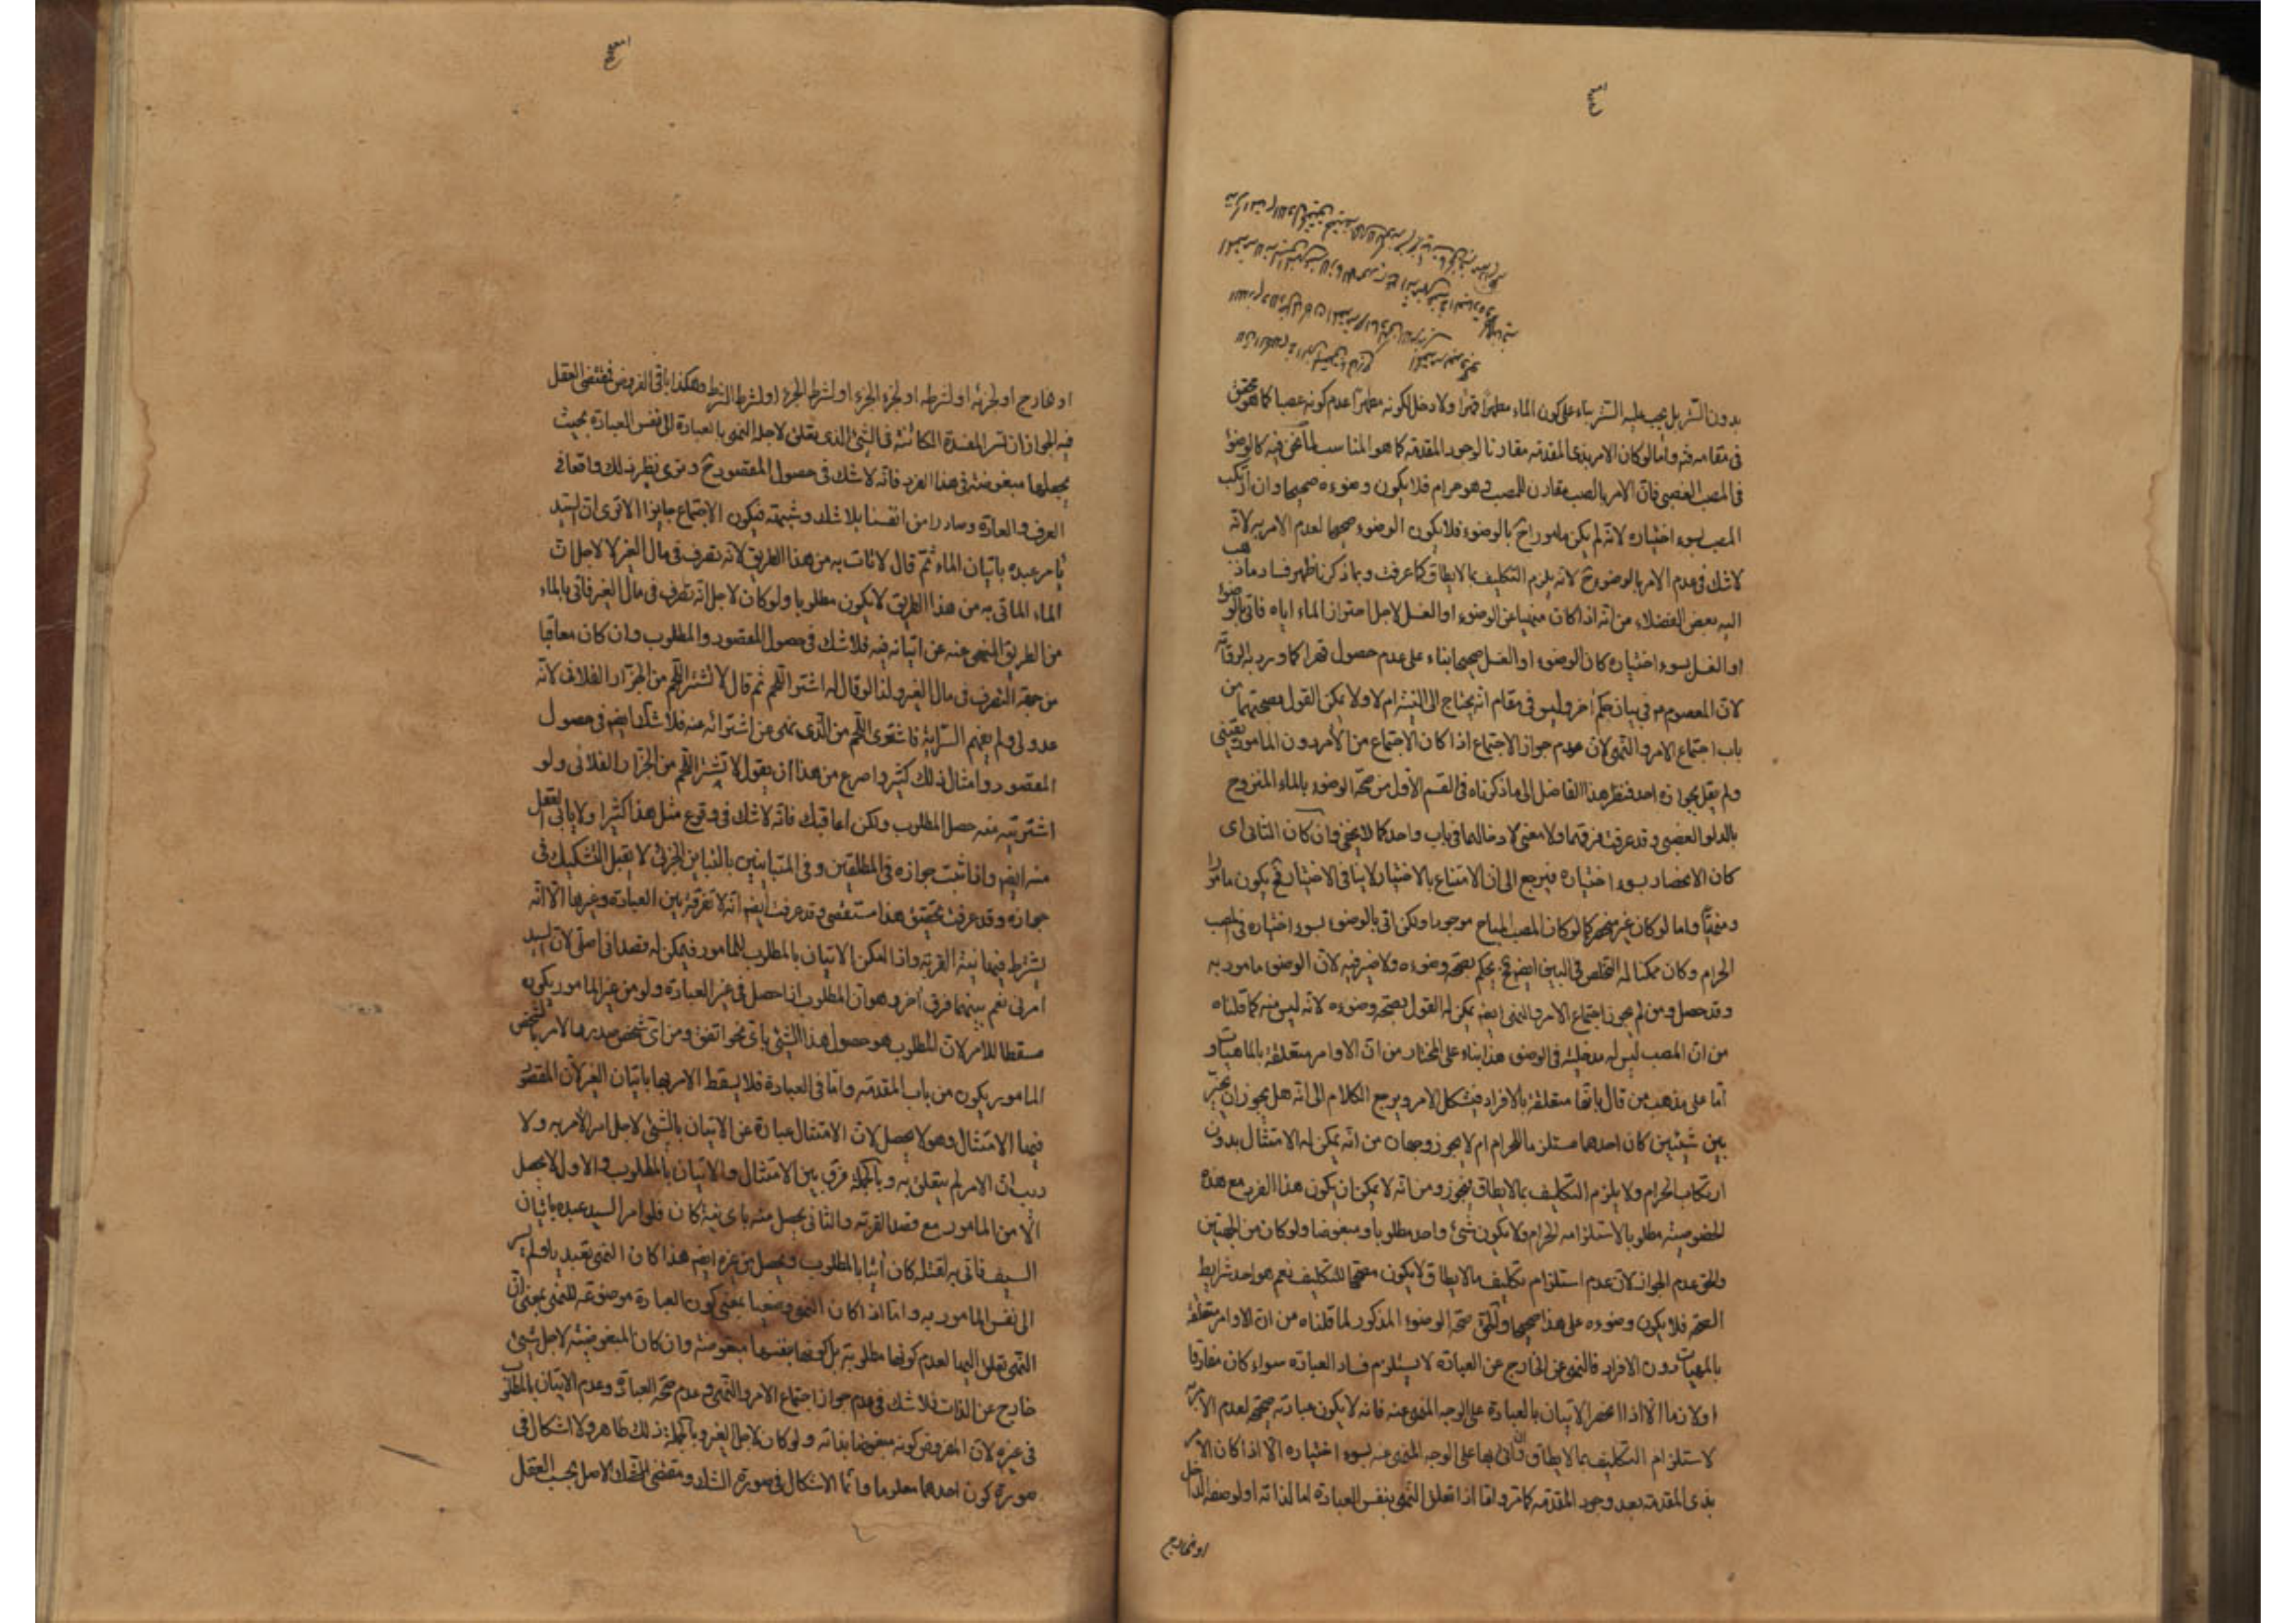 بدون التستر بل يجب عليه التستر بناء على كون الماء مطهرا قهرا ولا دخل لكونه مطهرا عدم كونه غصبا كما هو محقق
في مقامه واما لو كان الامر بذي المقدمة مقارنا لوجود المقدمة كما هو المناسب لما نحن فيه كالوضوء
في المصب الغصبي فان الامر بالصب مقارن للمصب وهو حرام فلا يكون وضوءه صحيحا وان ارتكب
المصب بسوء اختياره لانه لم يكن مامورا ح بالوضوء فلا يكون الوضوء صحيحا لعدم الامر به لانه
لا شك في عدم الامر بالوضوء ح لانه يلزم التكليف بما لا يطاق كما عرفت وبما ذكرنا ظهر فساد ما ذهب
اليه بعض الفضلاء من انه اذا كان منهيا عن الوضوء او الغسل لاجل احتراز الماء اياه فاتى بالوضوء
او الغسل بسوء اختياره كان الوضوء او الغسل صحيحا بناء على عدم حصول قهرا كما ورد به الرواية
لان المعصوم في بيان حكم آخر وليس في مقام انه يحتاج الى ام لا ولا يمكن القول بصحتهما من
باب اجتماع الامر والنهي لان عدم جواز الاجتماع اذا كان الاجتماع من الآمر دون المامور يقيني
ولم يقل بجوازه احد فنظر هذا الفاضل الى ما ذكرناه في القسم الاول من صحة الوضوء بالماء المنزوح
بالدلو الغصبي وقد عرفت فرقهما ولا معنى لادخالهما في باب واحد كما لا يخفى وان كان الثاني اى
كان الانحصار بسوء اختياره فيرجع الى ان الامتناع بالاختيار لا ينافي الاختيار فح يكون مامورا
ومنهيا واما لو كان غير منحصر كما لو كان المصب المباح موجودا ولكن اتى بالوضوء بسوء اختياره في المصب
الحرام وكان ممكنا له التخلص في البين ايضا فح يحكم بصحة وضوءه ولا ضير فيه لان الوضوء مامور به
وقد حصل ومن لم يجوز اجتماع الامر والنهي ايضا يمكن له القول بصحة وضوءه لانه ليس منه كما قلناه
من ان المصب ليس له مدخلية في الوضوء هذا بناء على المختار من ان الاوامر متعلقة بالماهيات و
اما على مذهب من قال بانها متعلقة بالافراد فيشكل الامر ويرجع الكلام الى انه هل يجوز ان يخير
بين شيئين كان احدهما مستلزما للحرام ام لا يجوز وجهان من انه يمكن له الامتثال بدون
ارتكاب الحرام ولا يلزم التكليف بما لا يطاق فيجوز ومن انه لا يمكن ان يكون هذا الفرد مع هذه
الخصوصية مطلوبا لاستلزامه الحرام ولا يكون شئ واحد مطلوبا ومبغوضا ولو كان من الجهتين
والحق عدم الجواز لان عدم استلزام تكليف بما لا يطاق لا يكون مصححا للتكليف نعم هو احد شرايط
الصحة فلا يكون وضوءه على هذا صحيحا والحق صحة الوضوء المذكور لما قلناه من ان الاوامر متعلقة
بالمهيات دون الافراد فالنهي عن الخارج عن العبادة لا يستلزم فساد العبادة سواء كان مفارقا
او لازما الا اذا انحصر الاتيان بالعبادة على الوجه المنهي عنه فانه لا يكون عبادته صحيحة لعدم الامر به
لاستلزام التكليف بما لا يطاق وان اتى بها على الوجه المنهي عنه بسوء اختياره الا اذا كان الامر
بذي المقدمة بعد وجود المقدمة كما مر واما اذا تعلق النهي بنفس العبادة اما لذاته او لوصفه الداخل
او لخارج
او لخارج او لجزئه او لشرطه او لجزء الجزء او لشرط الجزء او لشرط الشرط وهكذا باقي الفروض فمقتضى العقل
فيه الجواز ان لم تسر المفسدة الكائنة في الشئ الذي يتعلق لاجله النهي بالعبادة الى نفس العبادة بحيث
يجعلها مبغوضة في هذا الفرد فانه لا شك في حصول المقصود ح ونرى نظير ذلك واقعا في
العرف والعادة وصادرا من انفسنا بلا شك وشبهة فيكون الاجتماع جايزا الا ترى ان السيد
يامر عبده باتيان الماء ثم قال لا تات به من هذا الطريق لانه تصرف في مال الغير لا لاجل ان
الماء الماتى به من هذا الطريق لا يكون مطلوبا ولو كان لاجل انه تصرف في مال الغير فاتى بالماء
من الطريق المنهي عنه عن اتيانه فيه فلا شك في حصول المقصود والمطلوب وان كان معاقبا
من جهة التصرف في مال الغير ولذا لو قال له اشتر اللحم ثم قال لا تشتر اللحم من الجزار الفلاني لانه
عدو لي ولم يفهم السراية فاشترى اللحم من الذي نهى عن اشترائه منه فلا شك ايضا في حصول
المقصود وامثال ذلك كثيرة واصرح من هذا ان يقول لا تشتر اللحم من الجزار الفلاني ولو
اشتريته منه حصل المطلوب ولكن اعاقبك فانه لا شك في وقوع مثل هذا كثيرا ولا يابى العقل
منه ايضا واذا ثبت جوازه في المطلقين وفي المتباينين بالتباين الجزئي لا يقبل التشكيك في
جوازه وقد عرفت تحقيق هذا مستقصى وقد عرفت ايضا انه لا تفرقة بين العبادة وغيرها الا انه
يشترط فيها نية القربة واذا امكن الاتيان بالمطلوب للمامور فيمكن له قصد اني اصلي لان السيد
امرني نعم بينهما فرق آخر وهو ان المطلوب اذا حصل في غير العبادة ولو من غير المامور يكون
مسقطا للامر لان المطلوب هو حصول هذا الشئ باي نحو اتفق ومن اي شخص صدر والامر بالشخص
المامور يكون من باب المقدمة واما في العبادة فلا يسقط الامر بها باتيان الغير لان المقصود
فيها الامتثال وهو لا يحصل لان الامتثال عبارة عن الاتيان بالشئ لاجل امر الآمر به ولا
ريب ان الامر لم يتعلق به وبالجملة فرق بين الامتثال والاتيان بالمطلوب والاول لا يحصل
الا من المامور مع قصد القربة والثاني يحصل منه باى نية كان فلو امر السيد عبده باتيان
السيف فاتى به لقتله كان آتيا بالمطلوب ويحصل من غيره ايضا هذا كان النهي تقييديا ولم يسر
الى نفس المامور به واما اذا كان النهي وضعيا بمعنى كون العبادة موضوعة للنهي بمعنى ان
النهي تعلق اليها لعدم كونها مطلوبة بل كونها بنفسها مبغوضة وان كان المبغوضية لاجل شئ
خارج عن الذات فلا شك في عدم جواز اجتماع الامر والنهي وعدم صحة العبادة وعدم الاتيان بالمطلوب
في غيره لان المفروض كونه مبغوضا بذاته ولو كان لاجل الغير وبالجملة ذلك ظاهر ولا اشكال في
صورة كون احدهما معلوما وانما الاشكال في صورة الشك ومقتضى الاصل بحسب العقل